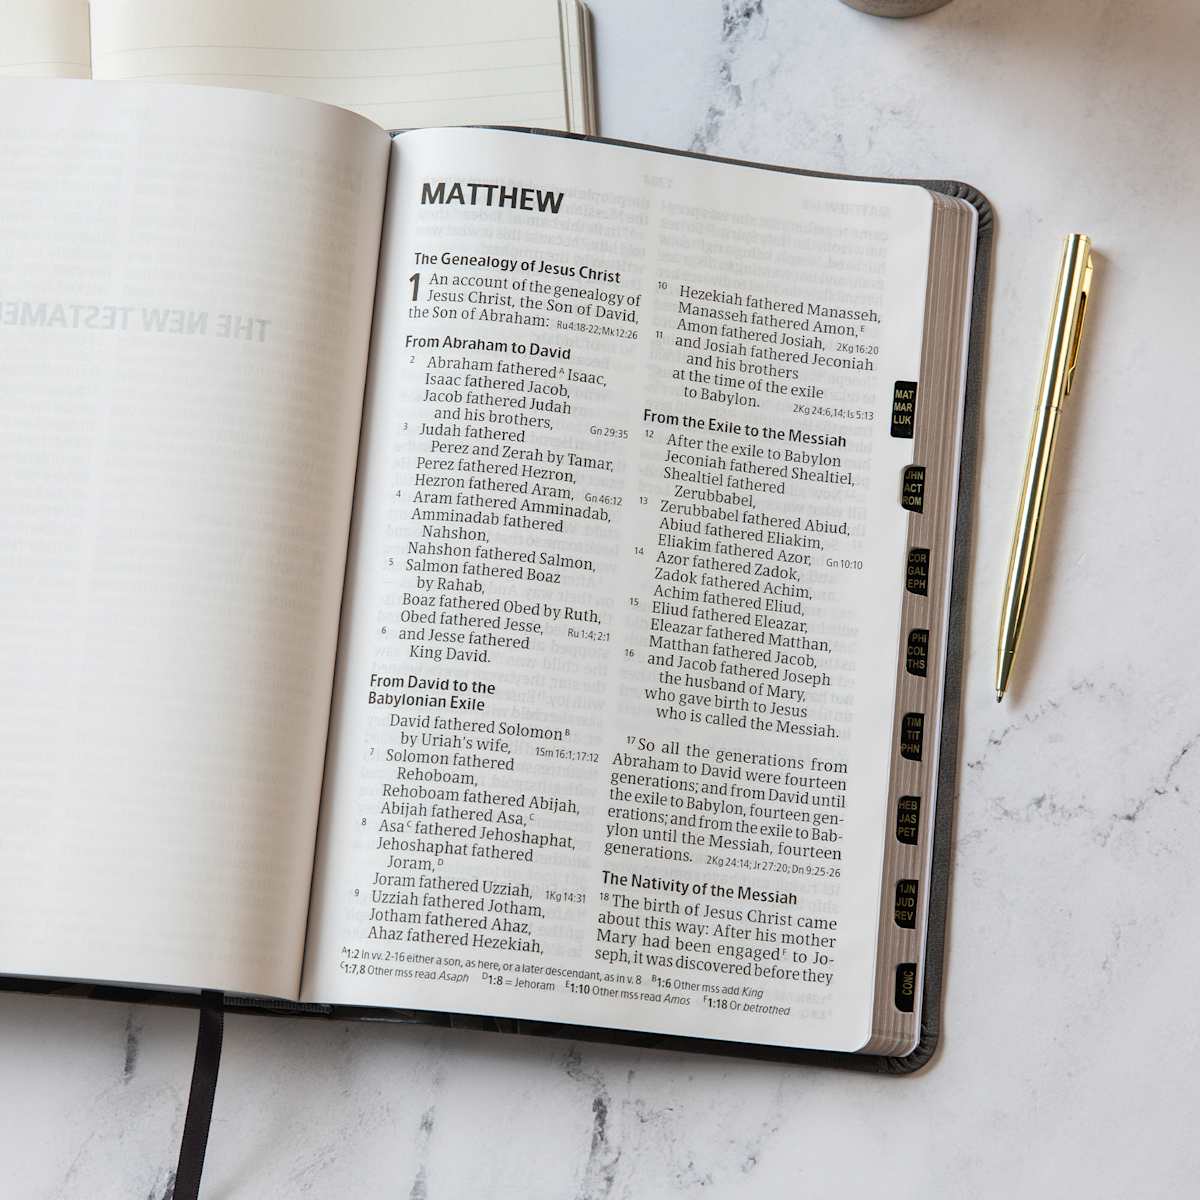 THE NEW TESTAME
MATTHEW
The Genealogy of Jesus Christ
1 An account of the genealogy of
Jesus Christ, the Son of David,
the Son of Abraham: Ru 4:18-22; Mk 12:26
From Abraham to David
2 Abraham fathered A Isaac,
Isaac fathered Jacob,
Jacob fathered Judah
and his brothers, Gn 29:35
3 Judah fathered
Perez and Zerah by Tamar,
Perez fathered Hezron,
Hezron fathered Aram, Gn 46:12
4 Aram fathered Amminadab,
Amminadab fathered
Nahshon,
Nahshon fathered Salmon,
5 Salmon fathered Boaz
by Rahab,
Boaz fathered Obed by Ruth,
Obed fathered Jesse, Ru 1:4; 2:1
6 and Jesse fathered
King David.
From David to the
Babylonian Exile
David fathered Solomon B
by Uriah's wife, 1Sm 16:1; 17:12
7 Solomon fathered
Rehoboam,
Rehoboam fathered Abijah,
Abijah fathered Asa, C
8 Asa C fathered Jehoshaphat,
Jehoshaphat fathered
Joram, D
Joram fathered Uzziah, 1Kg 14:31
9 Uzziah fathered Jotham,
Jotham fathered Ahaz,
Ahaz fathered Hezekiah,
10 Hezekiah fathered Manasseh,
Manasseh fathered Amon, E
Amon fathered Josiah, 2Kg 16:20
11 and Josiah fathered Jeconiah
and his brothers
at the time of the exile
to Babylon. 2Kg 24:6,14; Is 5:13
From the Exile to the Messiah
12 After the exile to Babylon
Jeconiah fathered Shealtiel,
Shealtiel fathered
Zerubbabel,
13 Zerubbabel fathered Abiud,
Abiud fathered Eliakim,
Eliakim fathered Azor, Gn 10:10
14 Azor fathered Zadok,
Zadok fathered Achim,
Achim fathered Eliud,
15 Eliud fathered Eleazar,
Eleazar fathered Matthan,
Matthan fathered Jacob,
16 and Jacob fathered Joseph
the husband of Mary,
who gave birth to Jesus
who is called the Messiah.
17 So all the generations from
Abraham to David were fourteen
generations; and from David until
the exile to Babylon, fourteen gen-
erations; and from the exile to Bab-
ylon until the Messiah, fourteen
generations. 2Kg 24:14; Jr 27:20; Dn 9:25-26
The Nativity of the Messiah
18 The birth of Jesus Christ came
about this way: After his mother
Mary had been engaged F to Jo-
seph, it was discovered before they
A1:2 In vv. 2-16 either a son, as here, or a later descendant, as in v. 8 B1:6 Other mss add King
C1:7,8 Other mss read Asaph D1:8 = Jehoram E1:10 Other mss read Amos F1:18 Or betrothed
MAT
MAR
LUK
JHN
ACT
ROM
COR
GAL
EPH
PHI
COL
THS
TIM
TIT
PHN
HEB
JAS
PET
1JN
JUD
REV
CONC